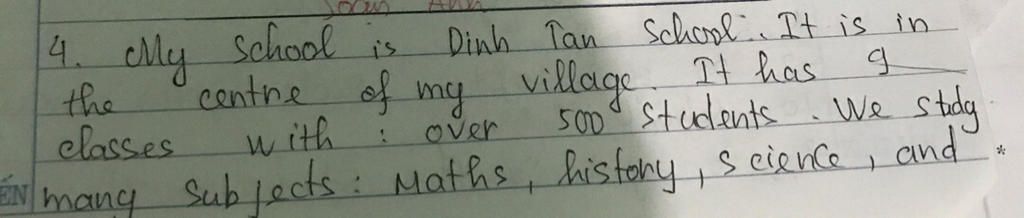 4. My school is Dinh Tan School. It is in
the centre of my village. It has 9
classes with : over 500 students. We study
many subjects: Maths, history, science, and *